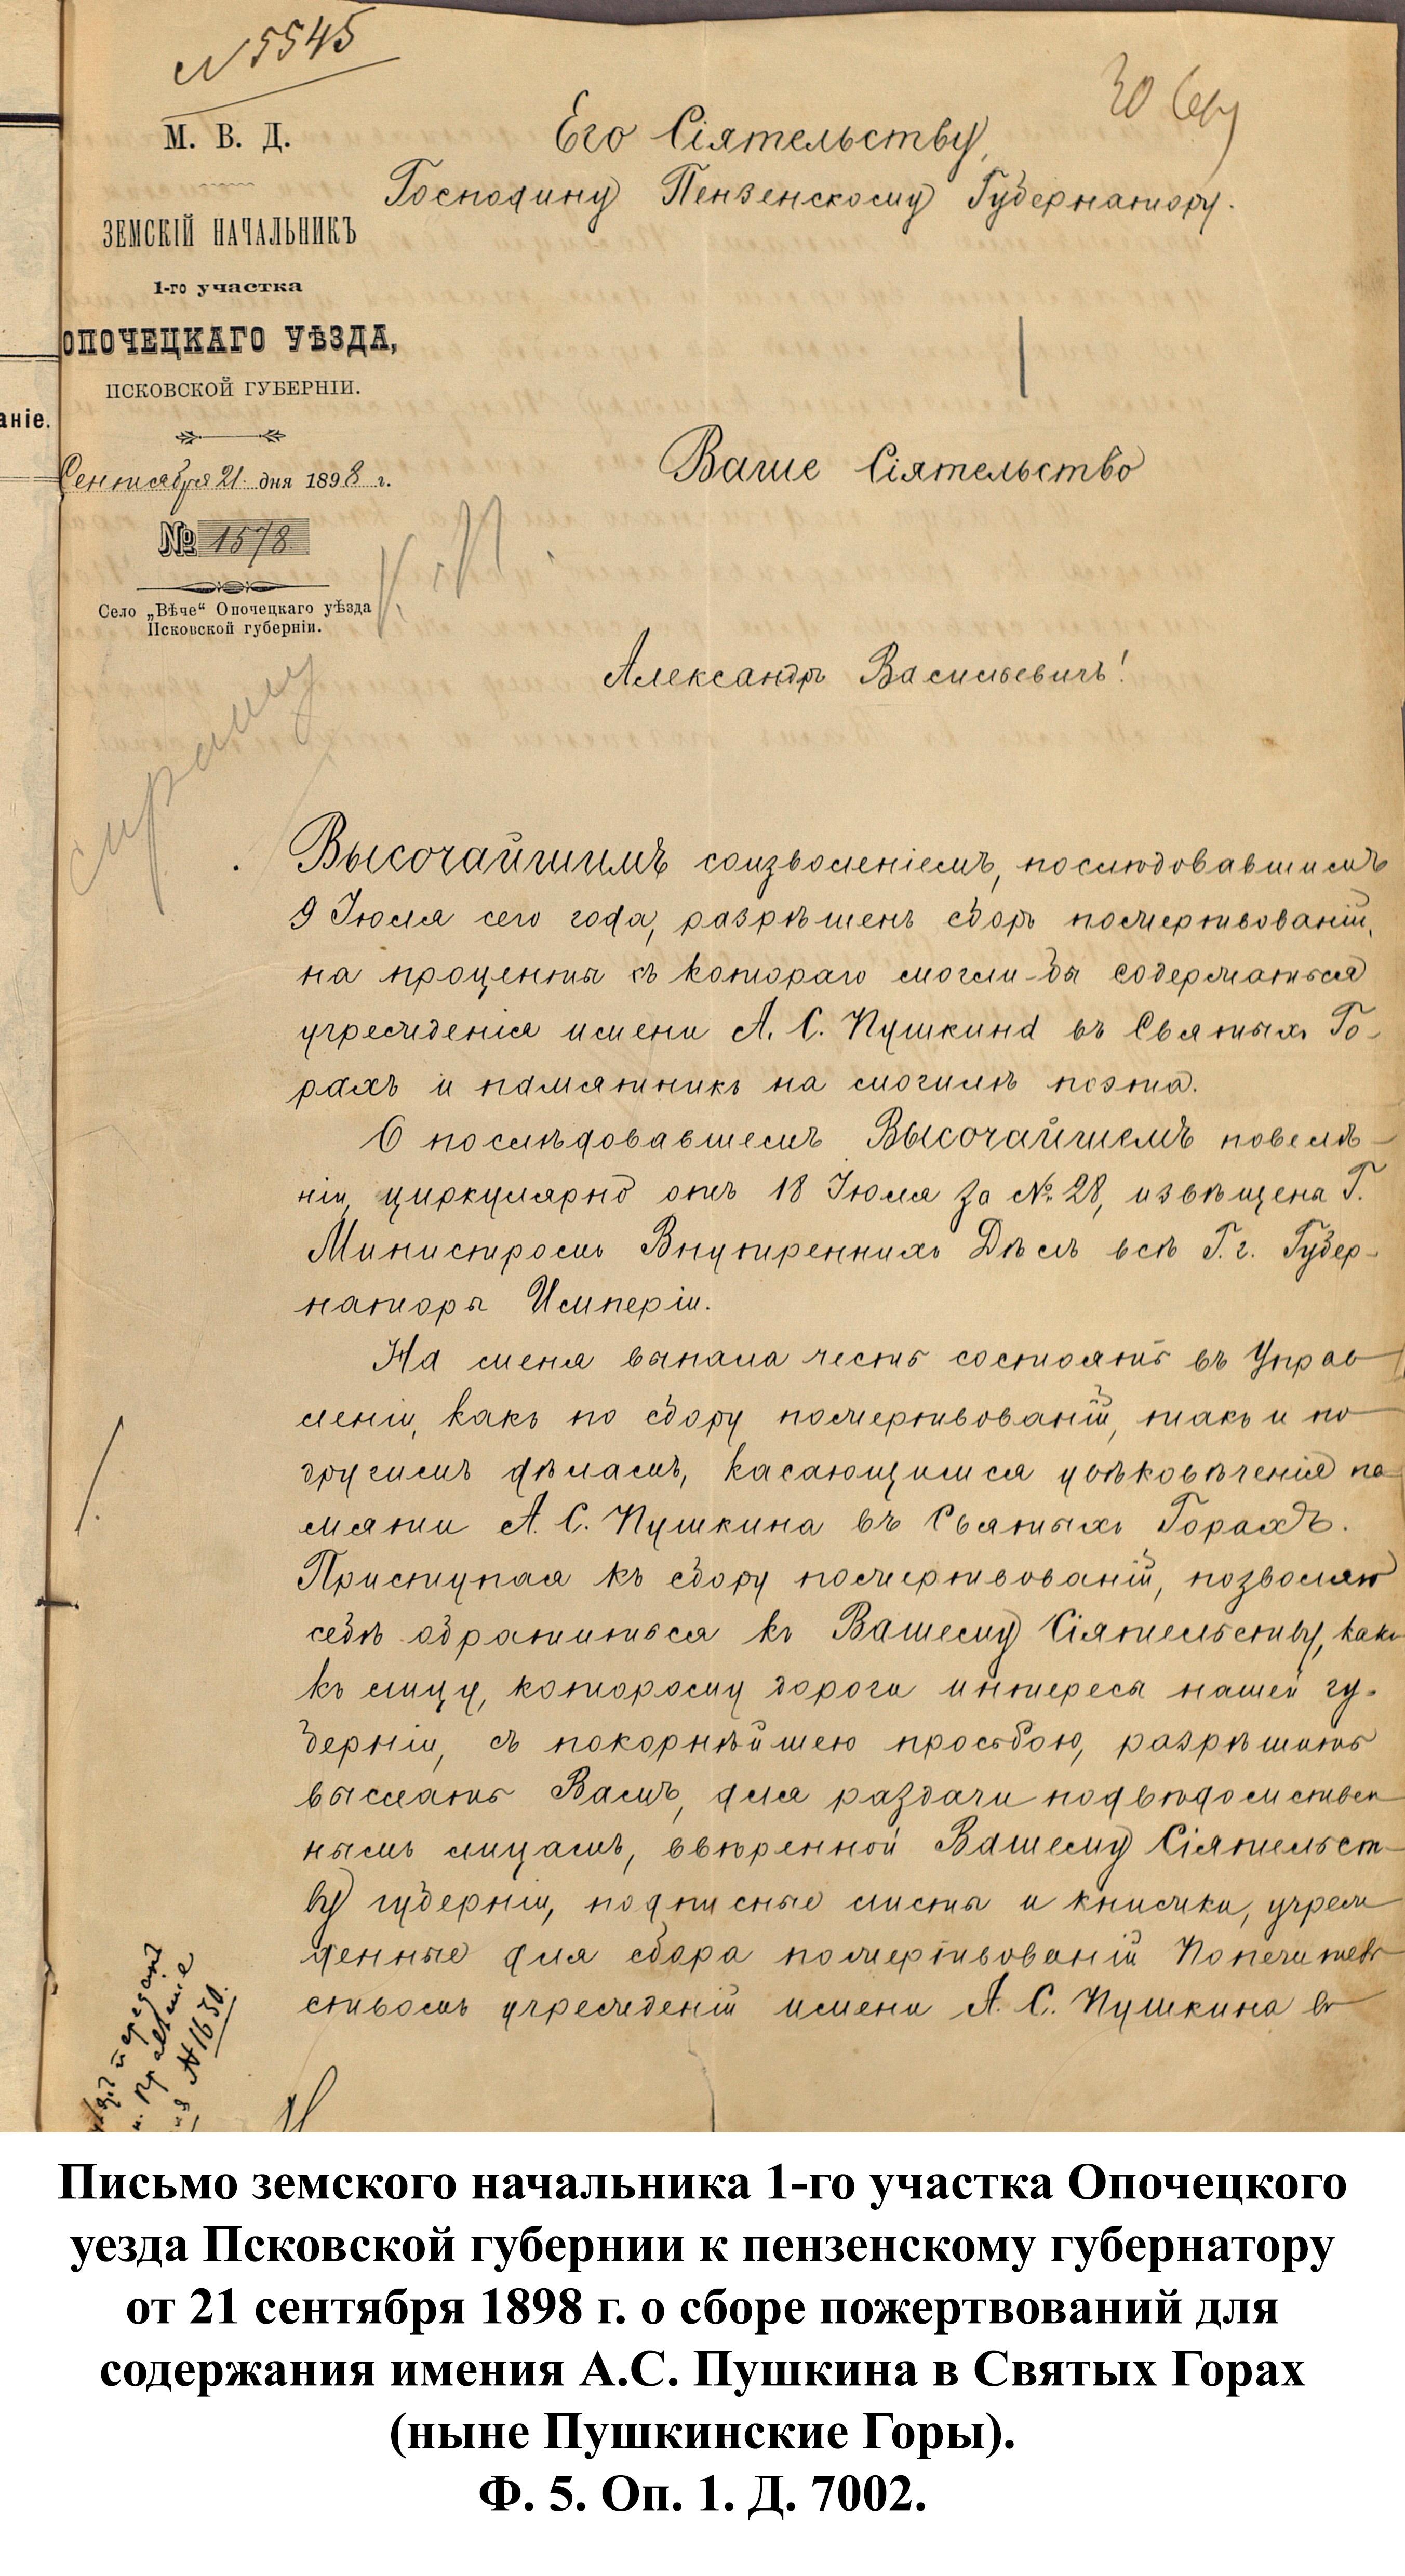 N 5545
30 Сен
М. В. Д.
ЗЕМСКІЙ НАЧАЛЬНИКЪ
1-го участка
ОПОЧЕЦКАГО УѢЗДА,
ПСКОВСКОЙ ГУБЕРНІИ.
Сентября 21 дня 1898 г.
№ 1578
Село „Вѣче“ Опочецкаго уѣзда
Псковской губерніи.
аніе.
Его Сіятельству,
Господину Пензенскому Губернатору.
Ваше Сіятельство
Александръ Васильевичъ!
Высочайшимъ соизволеніемъ, послѣдовавшимъ
9 Іюля сего года, разрѣшенъ сборъ пожертвованій,
на проценты съ котораго могли-бы содержаться
учрежденія имени А. С. Пушкина въ Святыхъ Го-
рахъ и памятникъ на могилѣ поэта.
О послѣдовавшемъ Высочайшемъ повелѣ-
ніи, циркулярно отъ 18 Іюля за № 28, извѣщены Г.
Министромъ Внутреннихъ Дѣлъ всѣ Г. г. Губер-
наторы Имперіи.
На меня выпала честь состоять въ Управ
леніи, какъ по сбору пожертвованій, такъ и по
другимъ дѣламъ, касающимся увѣковѣченія па
мяти А. С. Пушкина въ Святыхъ Горахъ.
Приступая къ сбору пожертвованій, позволяю
себѣ обратиться къ Вашему Сіятельству, какъ
къ лицу, которому дороги интересы нашей гу-
берніи, съ покорнѣйшею просьбою, разрѣшить
выслать Вамъ, для раздачи подвѣдомствен
нымъ лицамъ, ввѣренной Вашему Сіятельст-
ву губерніи, подписные листы и книжки, учреж
денные для сбора пожертвованій Попечитель
ствомъ учрежденій имени А. С. Пушкина въ
N 1630.
Письмо земского начальника 1-го участка Опочецкого
уезда Псковской губернии к пензенскому губернатору
от 21 сентября 1898 г. о сборе пожертвований для
содержания имения А.С. Пушкина в Святых Горах
(ныне Пушкинские Горы).
Ф. 5. Оп. 1. Д. 7002.